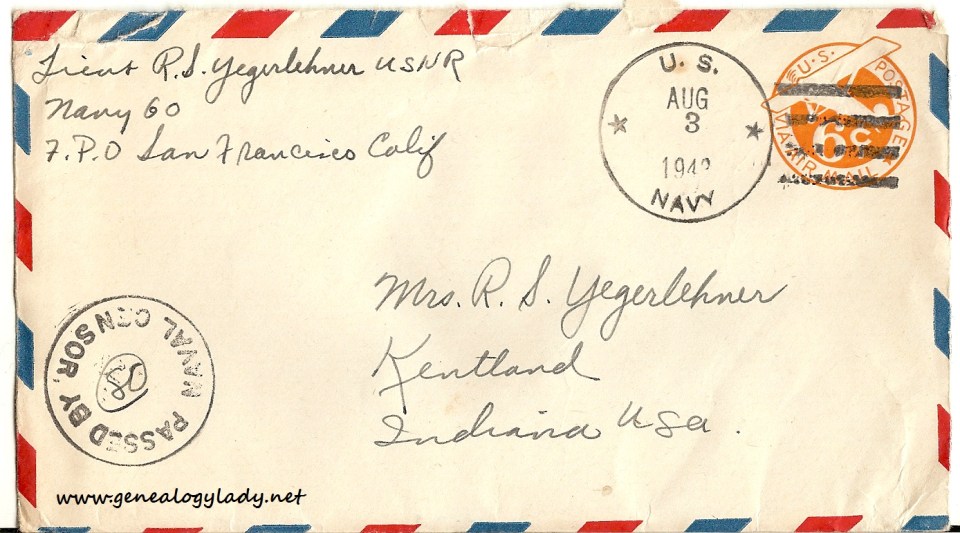 Lieut R.S. Yegerlehner USNR
Navy 60
F.P.O San Francisco Calif
U. S.
AUG
3
NAVY
U.S. POSTAGE
6c
VIA AIR MAIL
Mrs. R. S. Yegerlehner
Kentland
Indiana USA.
PASSED BY NAVAL CENSOR.
www.genealogylady.net